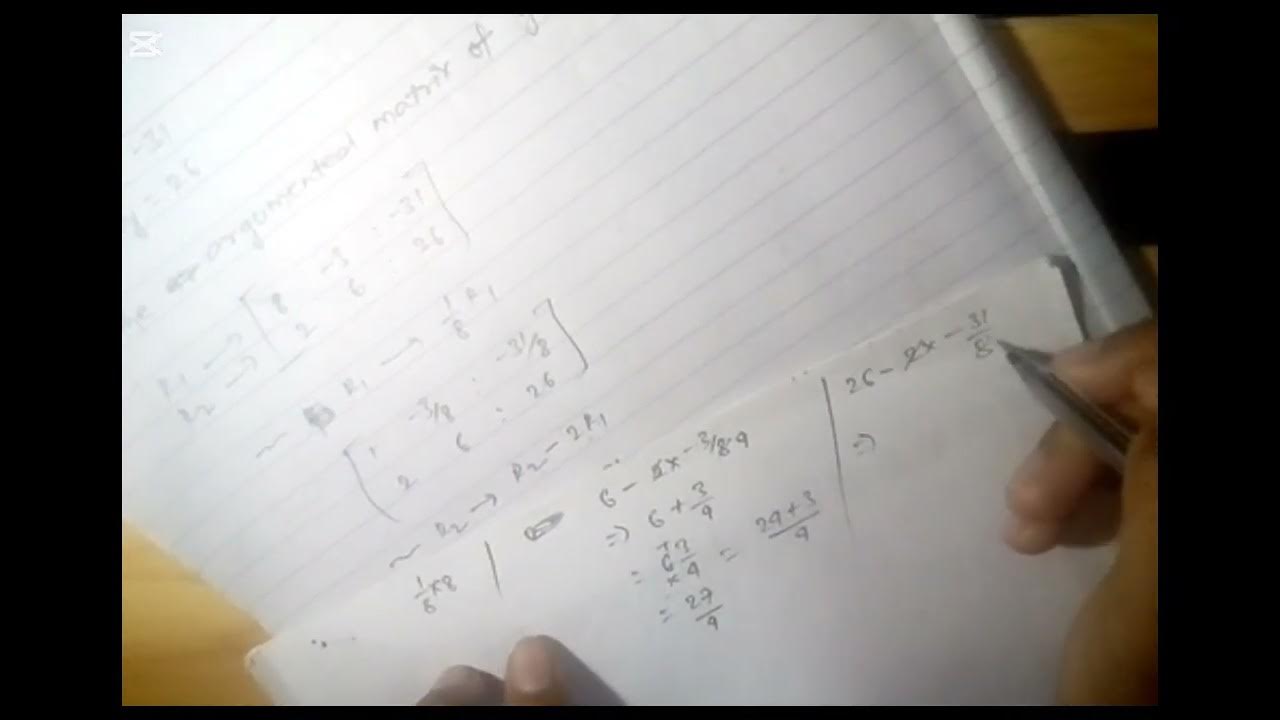 -31
y = 26
argumented matrix of
R1 → [ 8 -3 : -31
R2 → 2 6 : 26 ]
~ R1 → 1/8 R1
[ 1 -3/8 : -31/8
2 6 : 26 ]
~ R2 → R2 - 2R1
1/8 × 8
6 - 2x - 3/8 4
=> 6 + 3/4
= 6 + 3/4 = 24 + 3/4
= 27/4
26 - 2x - 31/8
=>